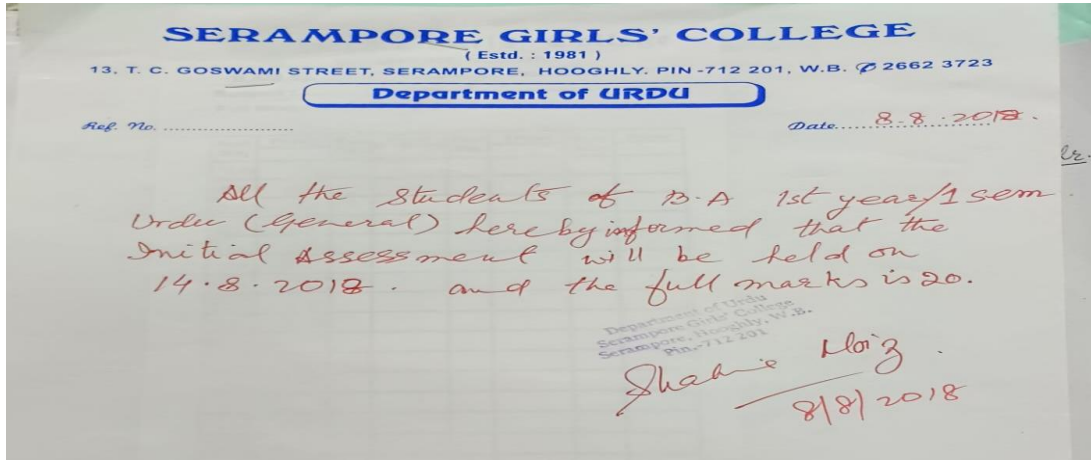 SERAMPORE GIRLS' COLLEGE
( Estd. : 1981 )
13, T. C. GOSWAMI STREET, SERAMPORE, HOOGHLY. PIN -712 201, W.B. ✆ 2662 3723
Department of URDU
Ref. No. ................................
Date.... 8.8.2018.
All the Students of B.A 1st year/1 sem
Urdu (General) hereby informed that the
Initial Assessment will be held on
14.8.2018. and the full marks is 20.
Department of Urdu
Serampore Girls' College
Serampore, Hooghly, W.B.
Pin.-712 201
8/8/2018